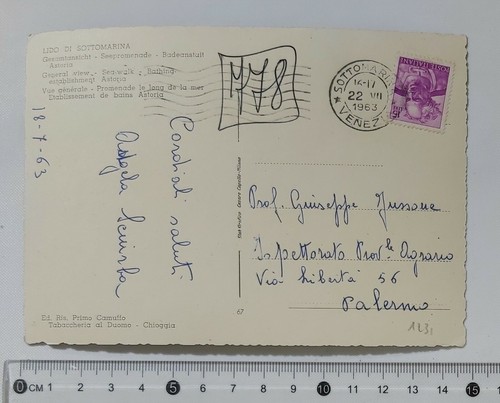 LIDO DI SOTTOMARINA
Gesamtansicht - Seepromenade - Badeanstalt
Astoria
General view - Sea-walk - Bathing-
establishment Astoria
Vue générale - Promenade le long de la mer
Etablissement de bains Astoria
18-7-63
Cordiali saluti
Angela
778
SOTTOMARINA
14-17
22 VII
1963
VENEZIA
POSTE ITALIANE
Prof. Giuseppe
Ispettorato Prov.le Agrario
Via Libertà 56
Palermo
1231
Ed. Ris. Primo Camuffo
Tabaccheria al Duomo - Chioggia
67
0 CM 1 2 3 4 5 6 7 8 9 10 11 12 13 14 15